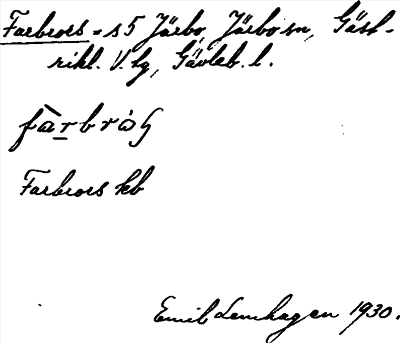 Farbrors - s 5 Järbo, Järbo sn, Gäst-
rikl. V. hg, Gävleb. l.
fàrbròɧ
Farbrors kb
Emil Lenhagen 1930.